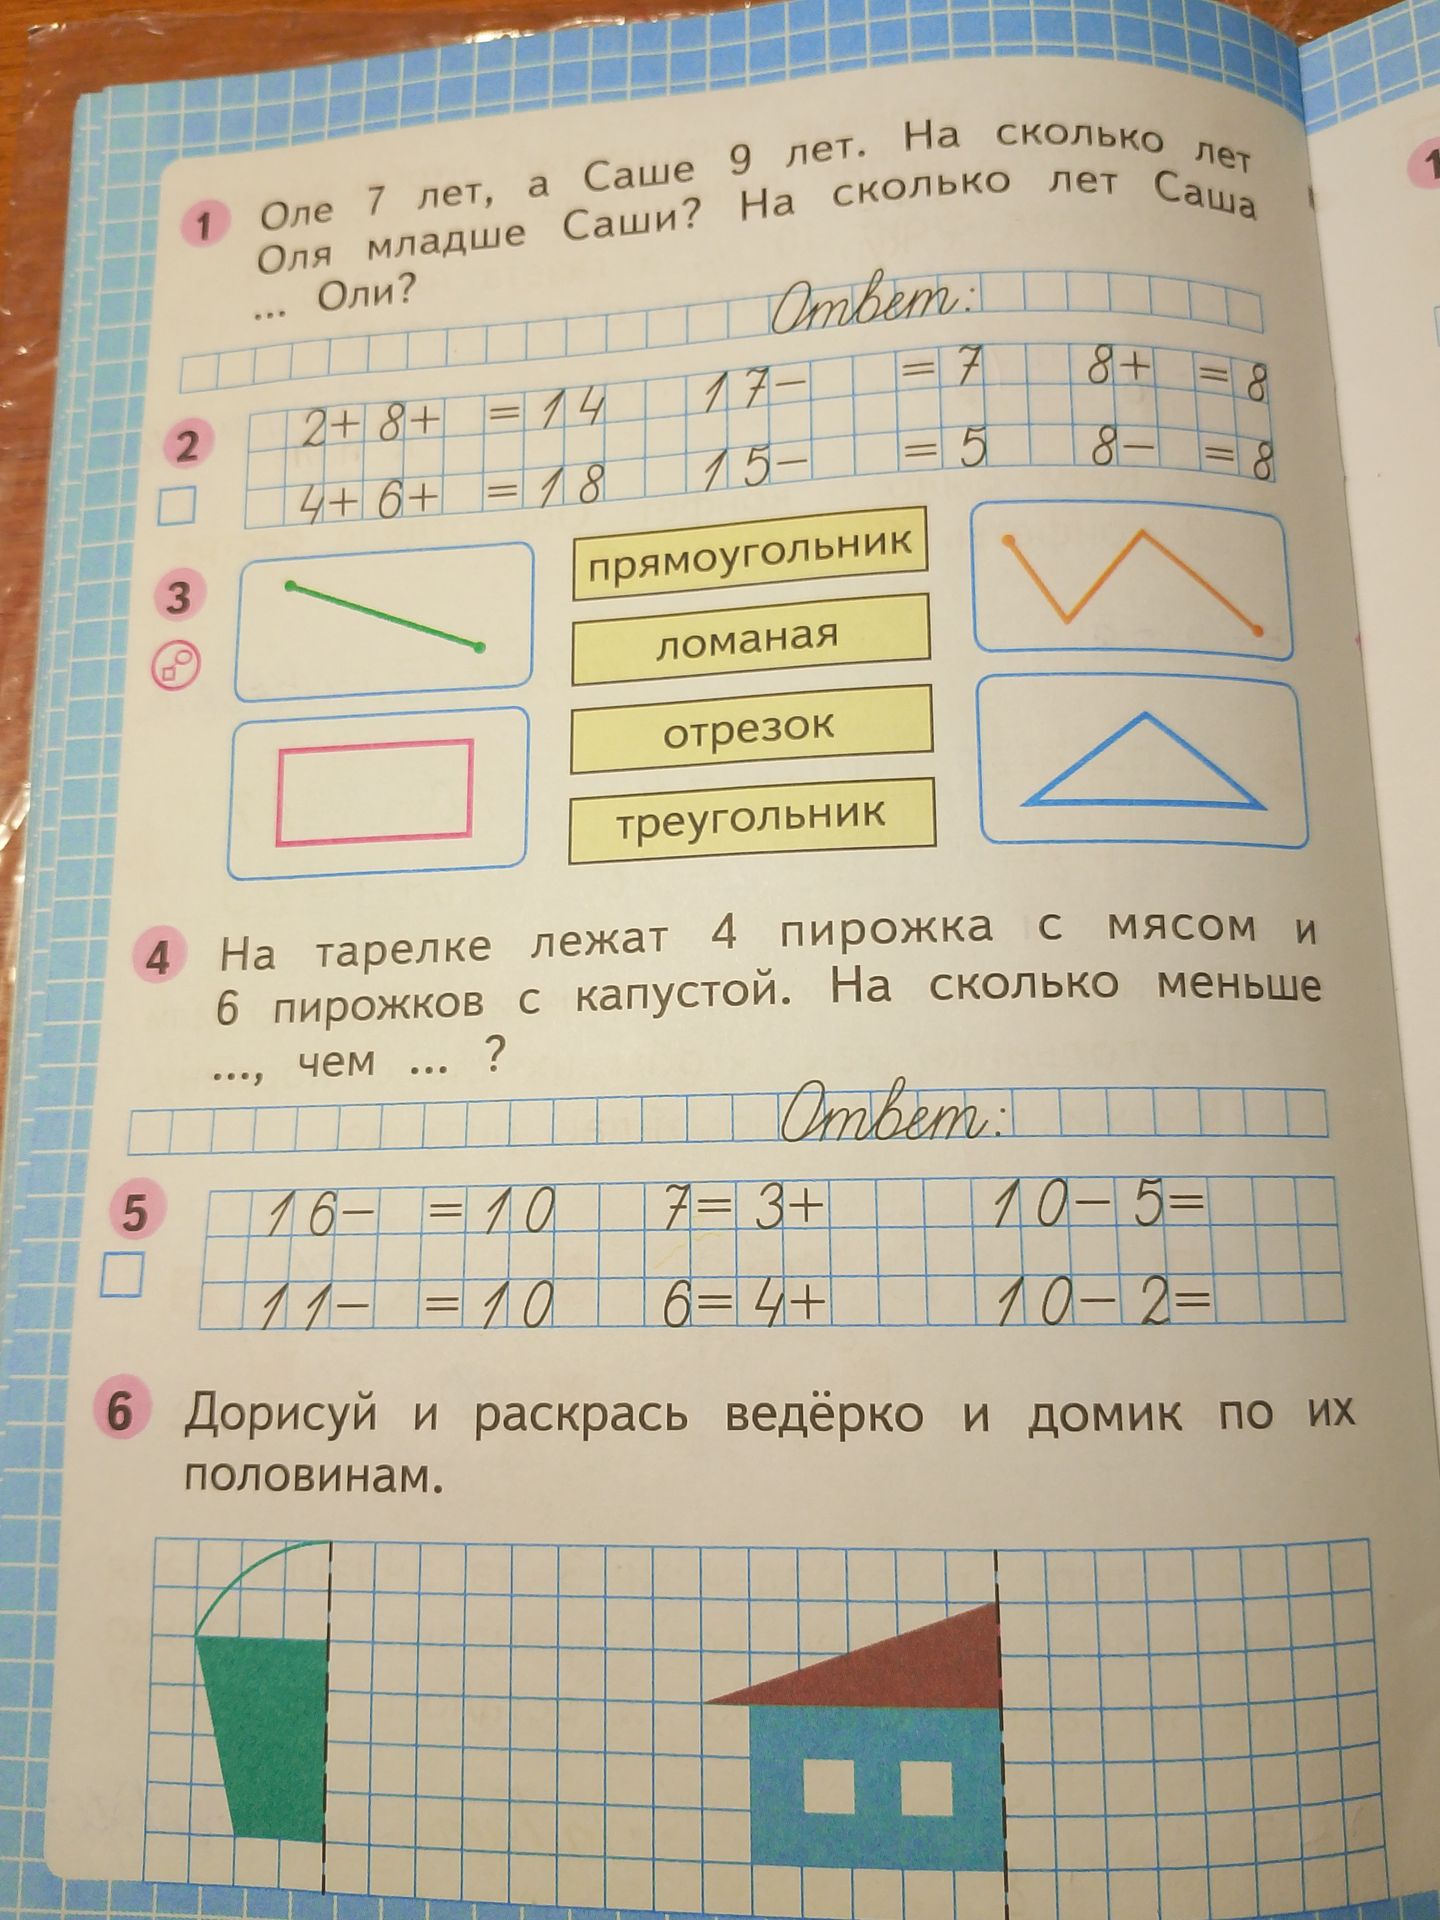 1 Оле 7 лет, а Саше 9 лет. На сколько лет
Оля младше Саши? На сколько лет Саша
... Оли?
Ответ:
2 2+8+ =14 17- =7 8+ =8
4+6+ =18 15- =5 8- =8
3 прямоугольник
ломаная
отрезок
треугольник
4 На тарелке лежат 4 пирожка с мясом и
6 пирожков с капустой. На сколько меньше
..., чем ... ?
Ответ:
5 16- =10 7=3+ 10-5=
11- =10 6=4+ 10-2=
6 Дорисуй и раскрась ведёрко и домик по их
половинам.
1